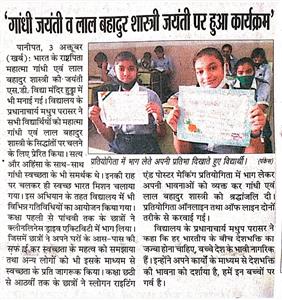 'गांधी जयंती व लाल बहादुर शास्त्री जयंती पर हुआ कार्यक्रम'
पानीपत, 3 अक्तूबर
(खर्ब) : भारत के राष्ट्रपिता
महात्मा गांधी एवं लाल
बहादुर शास्त्री की जयंती
एस.डी. विद्या मंदिर हुड्डा में
भी मनाई गई। विद्यालय के
प्रधानाचार्य मधुप परासर ने
सभी विद्यार्थियों को महात्मा
गांधी एवं लाल बहादुर
शास्त्री के सिद्धांतों पर चलने
के लिए प्रेरित किया। सत्य
और अहिंसा के साथ-साथ
गांधी स्वच्छता के भी समर्थक थे। इनकी राह
पर चलकर ही स्वच्छ भारत मिशन चलाया
गया। इस अभियान के तहत विद्यालय में भी
विभिन्न गतिविधियों का आयोजन किया गया।
कक्षा पहली से पांचवी तक के छात्रों ने
क्लीनलिनेस ड्राइव एक्टिविटी में भाग लिया।
जिसमें छात्रों ने अपने घरों के आस-पास की
सफाई कर स्वच्छता के महत्व को समझाया
तथा अन्य लोगों को भी इसके माध्यम से
स्वच्छता के प्रति जागरूक किया। कक्षा छठी से
आठवीं तक के छात्रों ने स्लोगन राइटिंग
प्रतियोगिता में भाग लेते अपनी प्रतिभा दिखाते हुए विद्यार्थी।
एंड पोस्टर मेकिंग प्रतियोगिता में भाग लेकर
अपनी भावनाओं को व्यक्त कर गांधी एवं
लाल बहादुर शास्त्री को श्रद्धांजलि दी।
प्रतियोगिता ऑनलाइन तथा ऑफ लाइन दोनों
तरीके से करवाई गई।
विद्यालय के प्रधानाचार्य मधुप परासर ने
कहा कि हर भारतीय के बीच देशभक्ति का
जज्बा होना चाहिए, बच्चे देश के भावी नागरिक
हैं। इन्होंने अपने कार्यों के माध्यम से देशभक्ति
की भावना को दर्शाया है, हमें इन बच्चों पर
गर्व है।